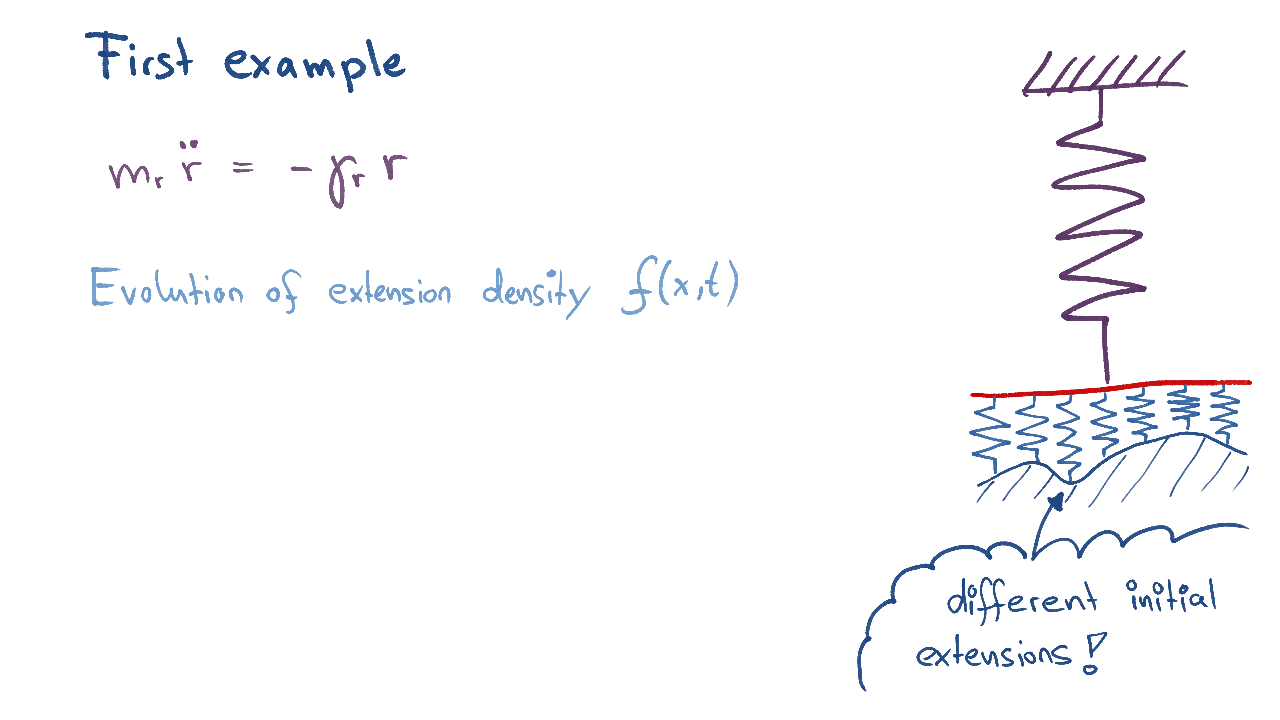 First example
m_r r̈ = - γ_r r
Evolution of extension density f(x,t)
different initial
extensions!